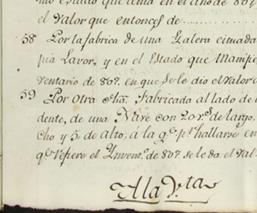 mo estado que tenia en el año de 807
el valor que entonces de
58 Por la fabrica de una Galera
pia Lavor, y en el Estado que
ventario de 807. en que se le dio el valor
59 Por otra Fabricada al lado de
dente, de una Nave con 20 v.s de largo,
cho y 5 de alto, á la q.e p.r hallarse en
q.e refiere el Ynvent.o de 807 se le da el val